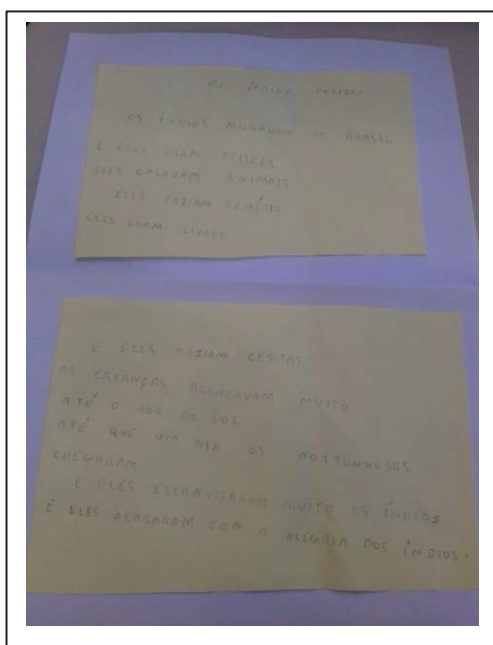 OS ÍNDIOS
OS ÍNDIOS MORAVAM NO BRASIL
E ELES ERAM FELIZES
ELES CASAVAM ANIMAIS
ELES FAZIAM REMÉDIO
ELES ERAM LIVRES
E ELES FAZIAM CESTAS
AS CRIANÇAS BRINCAVAM MUITO
ATÉ O POR DO SOL
ATÉ QUE UM DIA OS PORTUGUESES
CHEGARAM
E ELES ESCRAVISARAM MUITO OS ÍNDIOS.
E ELES ACABARAM COM A ALEGRIA DOS ÍNDIOS.